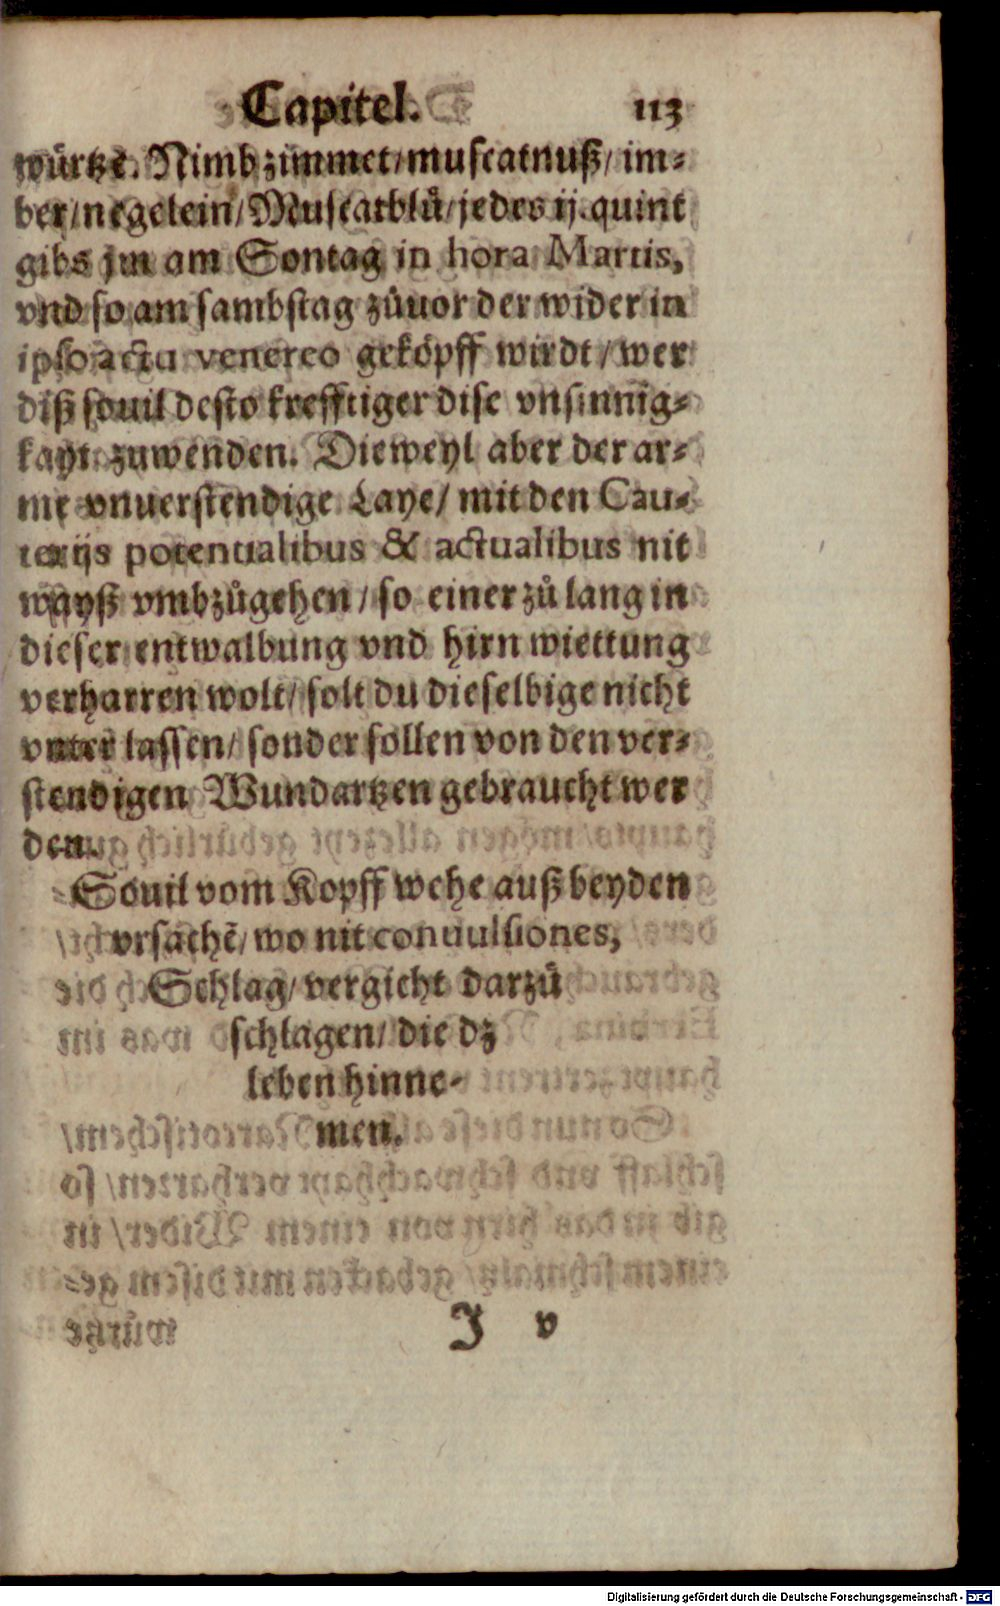 Capitel. 113
würtzē. Nimb zimmet/muscatnuß/ im-
ber/negelein/Muscatblů/jedes ij.quint
gibs jm am Sontag in hora Martis,
vnd so am sambstag zůuor der wider in
ipso actu venereo geköpff wirdt/wer
diß souil desto krefftiger dise vnsinnig-
kayt zuwenden. Dieweyl aber der ar-
me vnuerstendige Laye/ mit den Cau-
terijs potentialibus & actualibus nit
wayß vmbzůgehen/so einer zů lang in
dieser entwalbung vnd hirn wiettung
verharren wolt/solt du dieselbige nicht
vnter lassen/sonder sollen von den ver-
stendigen Wundartzen gebraucht wer
den.
Souil vom Kopff wehe auß beyden
vrsachē/wo nit conuulsiones,
Schlag/vergicht darzů
schlagen/die dz
leben hinne-
men.
J v
Digitalisierung gefördert durch die Deutsche Forschungsgemeinschaft - DFG